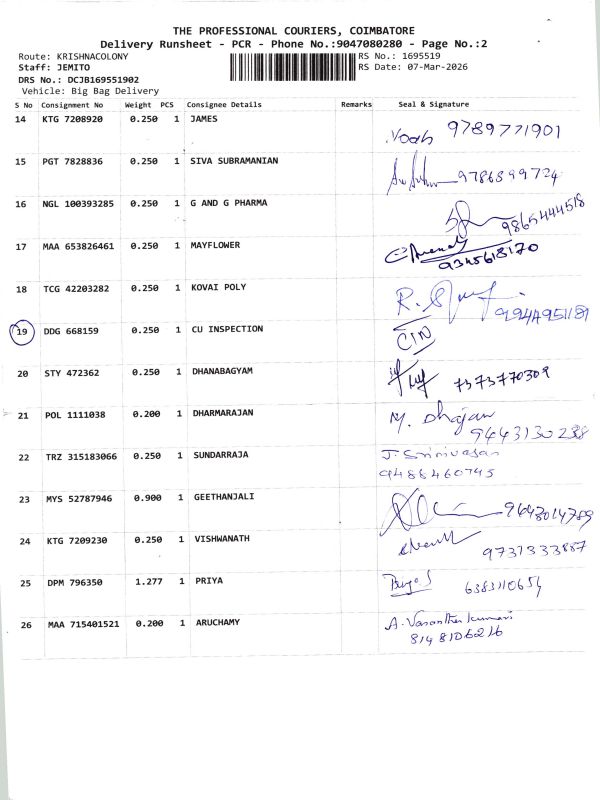 THE PROFESSIONAL COURIERS, COIMBATORE
Delivery Runsheet - PCR - Phone No.:9047080280 - Page No.:2
Route: KRISHNACOLONY
Staff: JEMITO
DRS No.: DCJB169551902
Vehicle: Big Bag Delivery
RS No.: 1695519
RS Date: 07-Mar-2026
S No Consignment No Weight PCS Consignee Details Remarks Seal & Signature
14 KTG 7208920 0.250 1 JAMES 9789771901
15 PGT 7828836 0.250 1 SIVA SUBRAMANIAN 9786899724
16 NGL 100393285 0.250 1 G AND G PHARMA 9865444518
17 MAA 653826461 0.250 1 MAYFLOWER
9345618170
18 TCG 42203282 0.250 1 KOVAI POLY R.
19 DDG 668159 0.250 1 CU INSPECTION CIN
20 STY 472362 0.250 1 DHANABAGYAM 7373770309
21 POL 1111038 0.200 1 DHARMARAJAN M. Dhajan
9443130238
22 TRZ 315183066 0.250 1 SUNDARRAJA J. Srinivasan
9488460745
23 MYS 52787946 0.900 1 GEETHANJALI 9643014789
24 KTG 7209230 0.250 1 VISHWANATH
9731333887
25 DPM 796350 1.277 1 PRIYA 6383110654
26 MAA 715401521 0.200 1 ARUCHAMY A. Vasantha kumari
8148106216